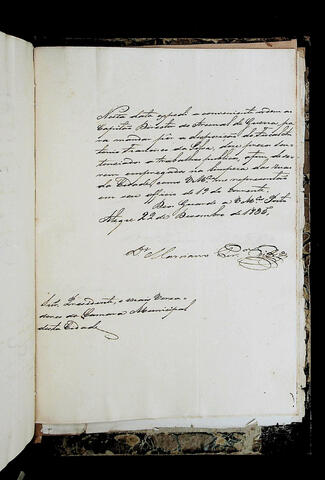 Nesta data expedi a conveniente ordem ao
Capitão Director do Arsenal de Guerra pa
ra mandar pôr a disposição do Fiscal
Francisco da dois presos sen
tenciados a trabalhos publicos, afim de se
rem empregados na limpeza das ruas
da Cidade, como V.Mces. representarão
em seu officio de 19 do corrente.
Deos Guarde a V.Mces. Porto
Alegre 22 de Dezembro de 1836.
Snrs. Presidente, e mais Verea
dores da Camara Municipal
desta Cidade